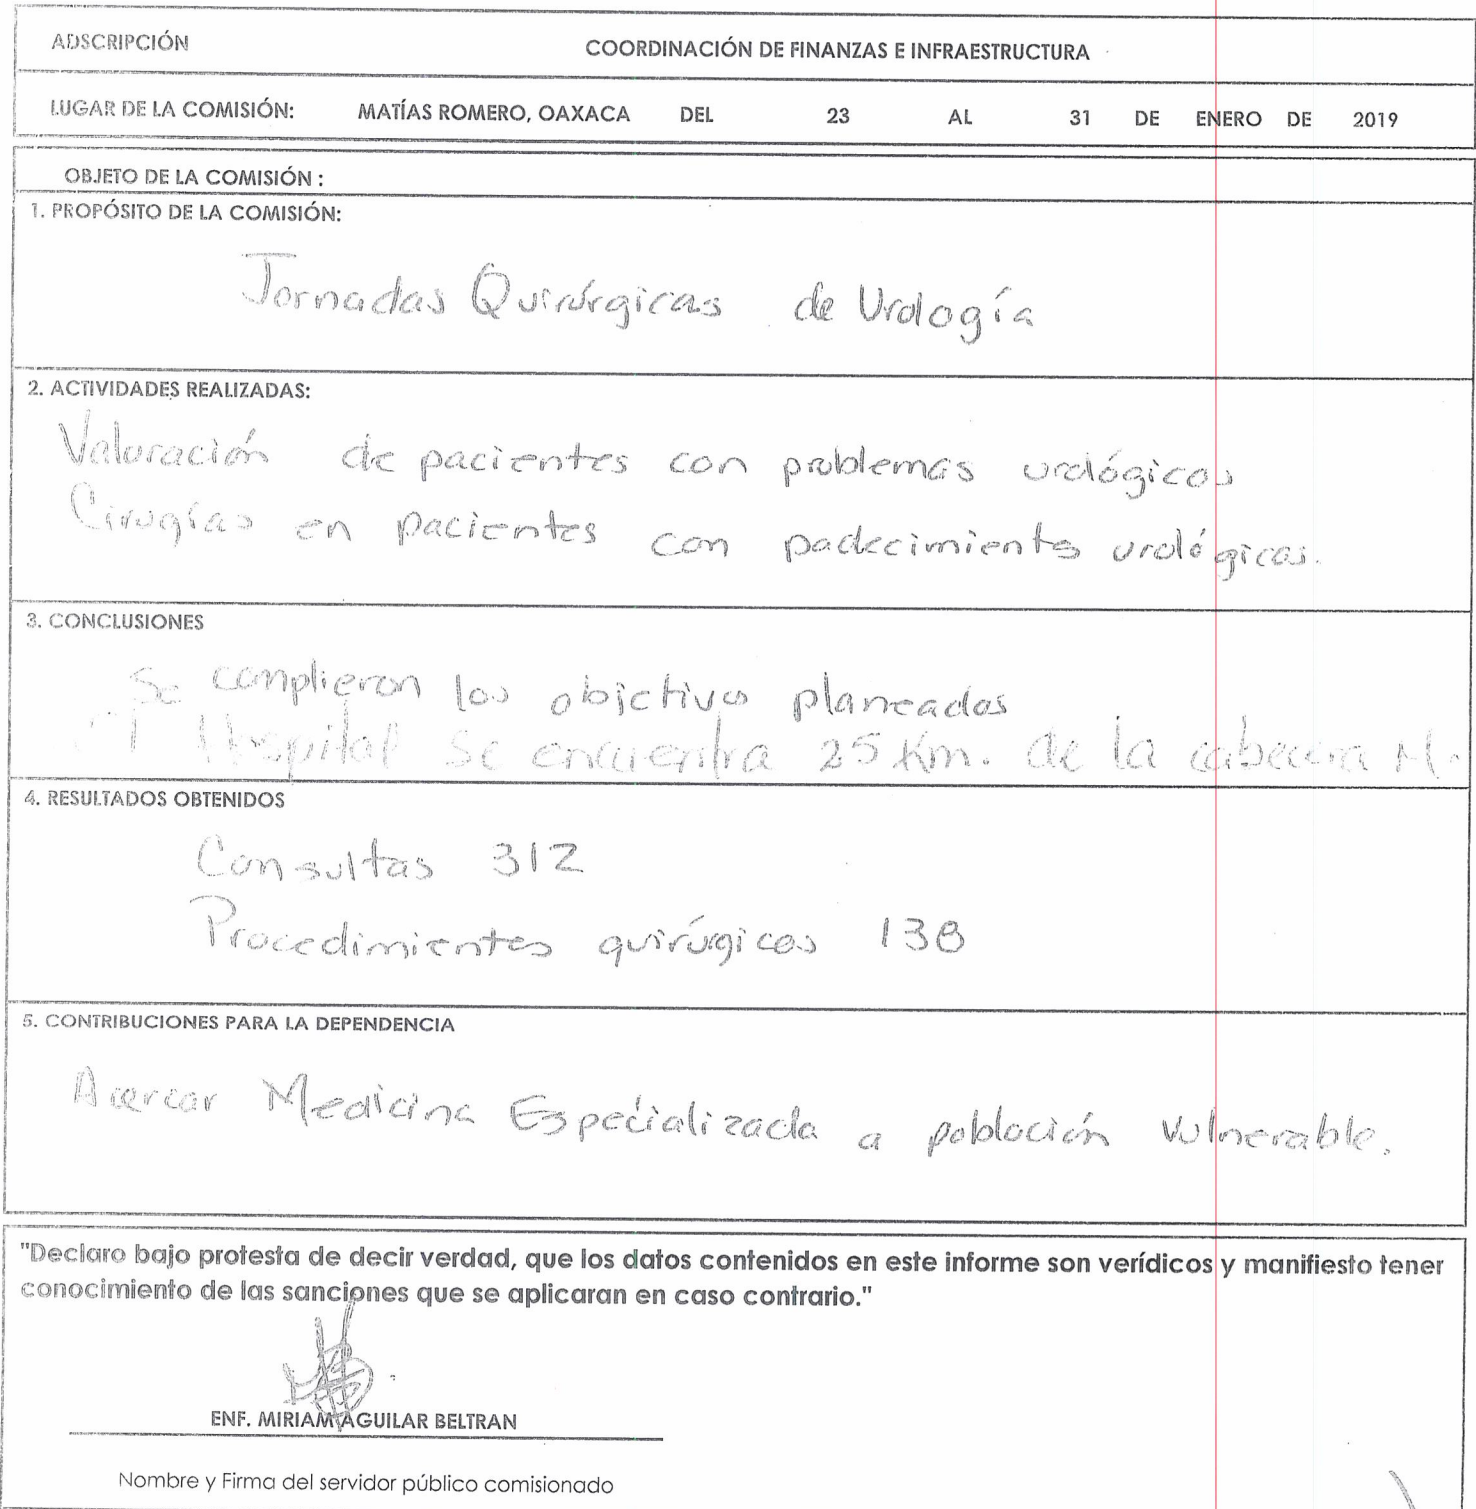 ADSCRIPCIÓN COORDINACIÓN DE FINANZAS E INFRAESTRUCTURA
LUGAR DE LA COMISIÓN: MATÍAS ROMERO, OAXACA DEL 23 AL 31 DE ENERO DE 2019
OBJETO DE LA COMISIÓN :
1. PROPÓSITO DE LA COMISIÓN:
Jornadas Quirúrgicas de Urología
2. ACTIVIDADES REALIZADAS:
Valoración de pacientes con problemas urológicos
Cirugías en pacientes con padecimientos urológicos.
3. CONCLUSIONES
Se cumplieron los objetivos planeados
El Hospital se encuentra 25 Km. de la cabecera M.
4. RESULTADOS OBTENIDOS
Consultas 312
Procedimientos quirúrgicos 138
5. CONTRIBUCIONES PARA LA DEPENDENCIA
Acercar Medicina Especializada a población vulnerable.
"Declaro bajo protesta de decir verdad, que los datos contenidos en este informe son verídicos y manifiesto tener
conocimiento de las sanciones que se aplicaran en caso contrario."
ENF. MIRIAM AGUILAR BELTRAN
Nombre y Firma del servidor público comisionado